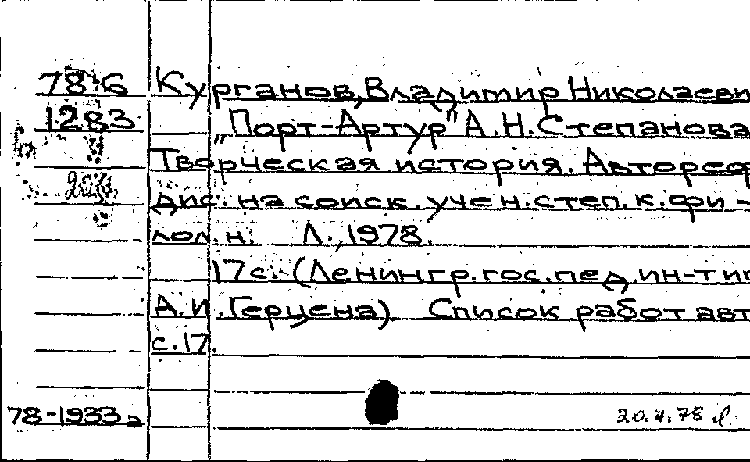 78-6 Курганов, Владимир Николаеви
1283 "Порт-Артур" А.Н.Степанова
Творческая история. Автореф
дис. на соиск. учен. степ. к. фи-
лол. н. Л., 1978.
17с. (Ленингр. гос. пед. ин-т им
А.И.Герцена). Список работ авт
с.17.
78-1933а 20.4.78